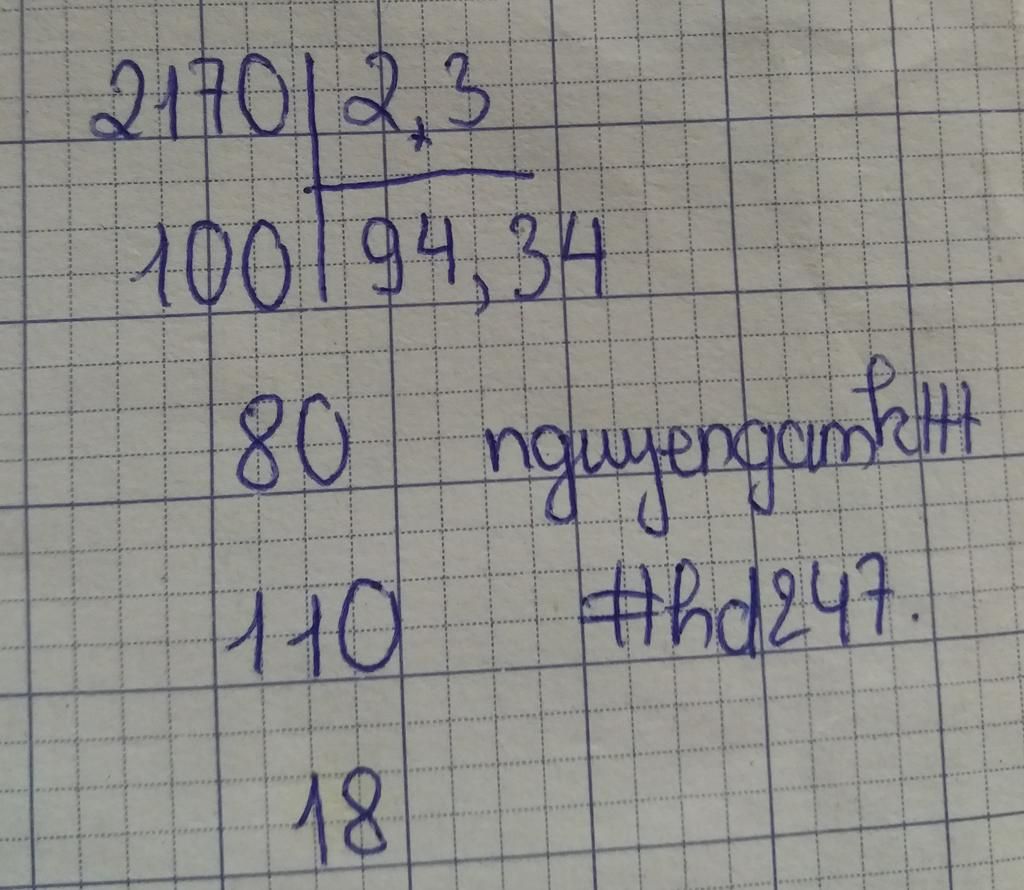 2170 2,3
100 94,34
80 nguyengamk
110 #hd247.
18